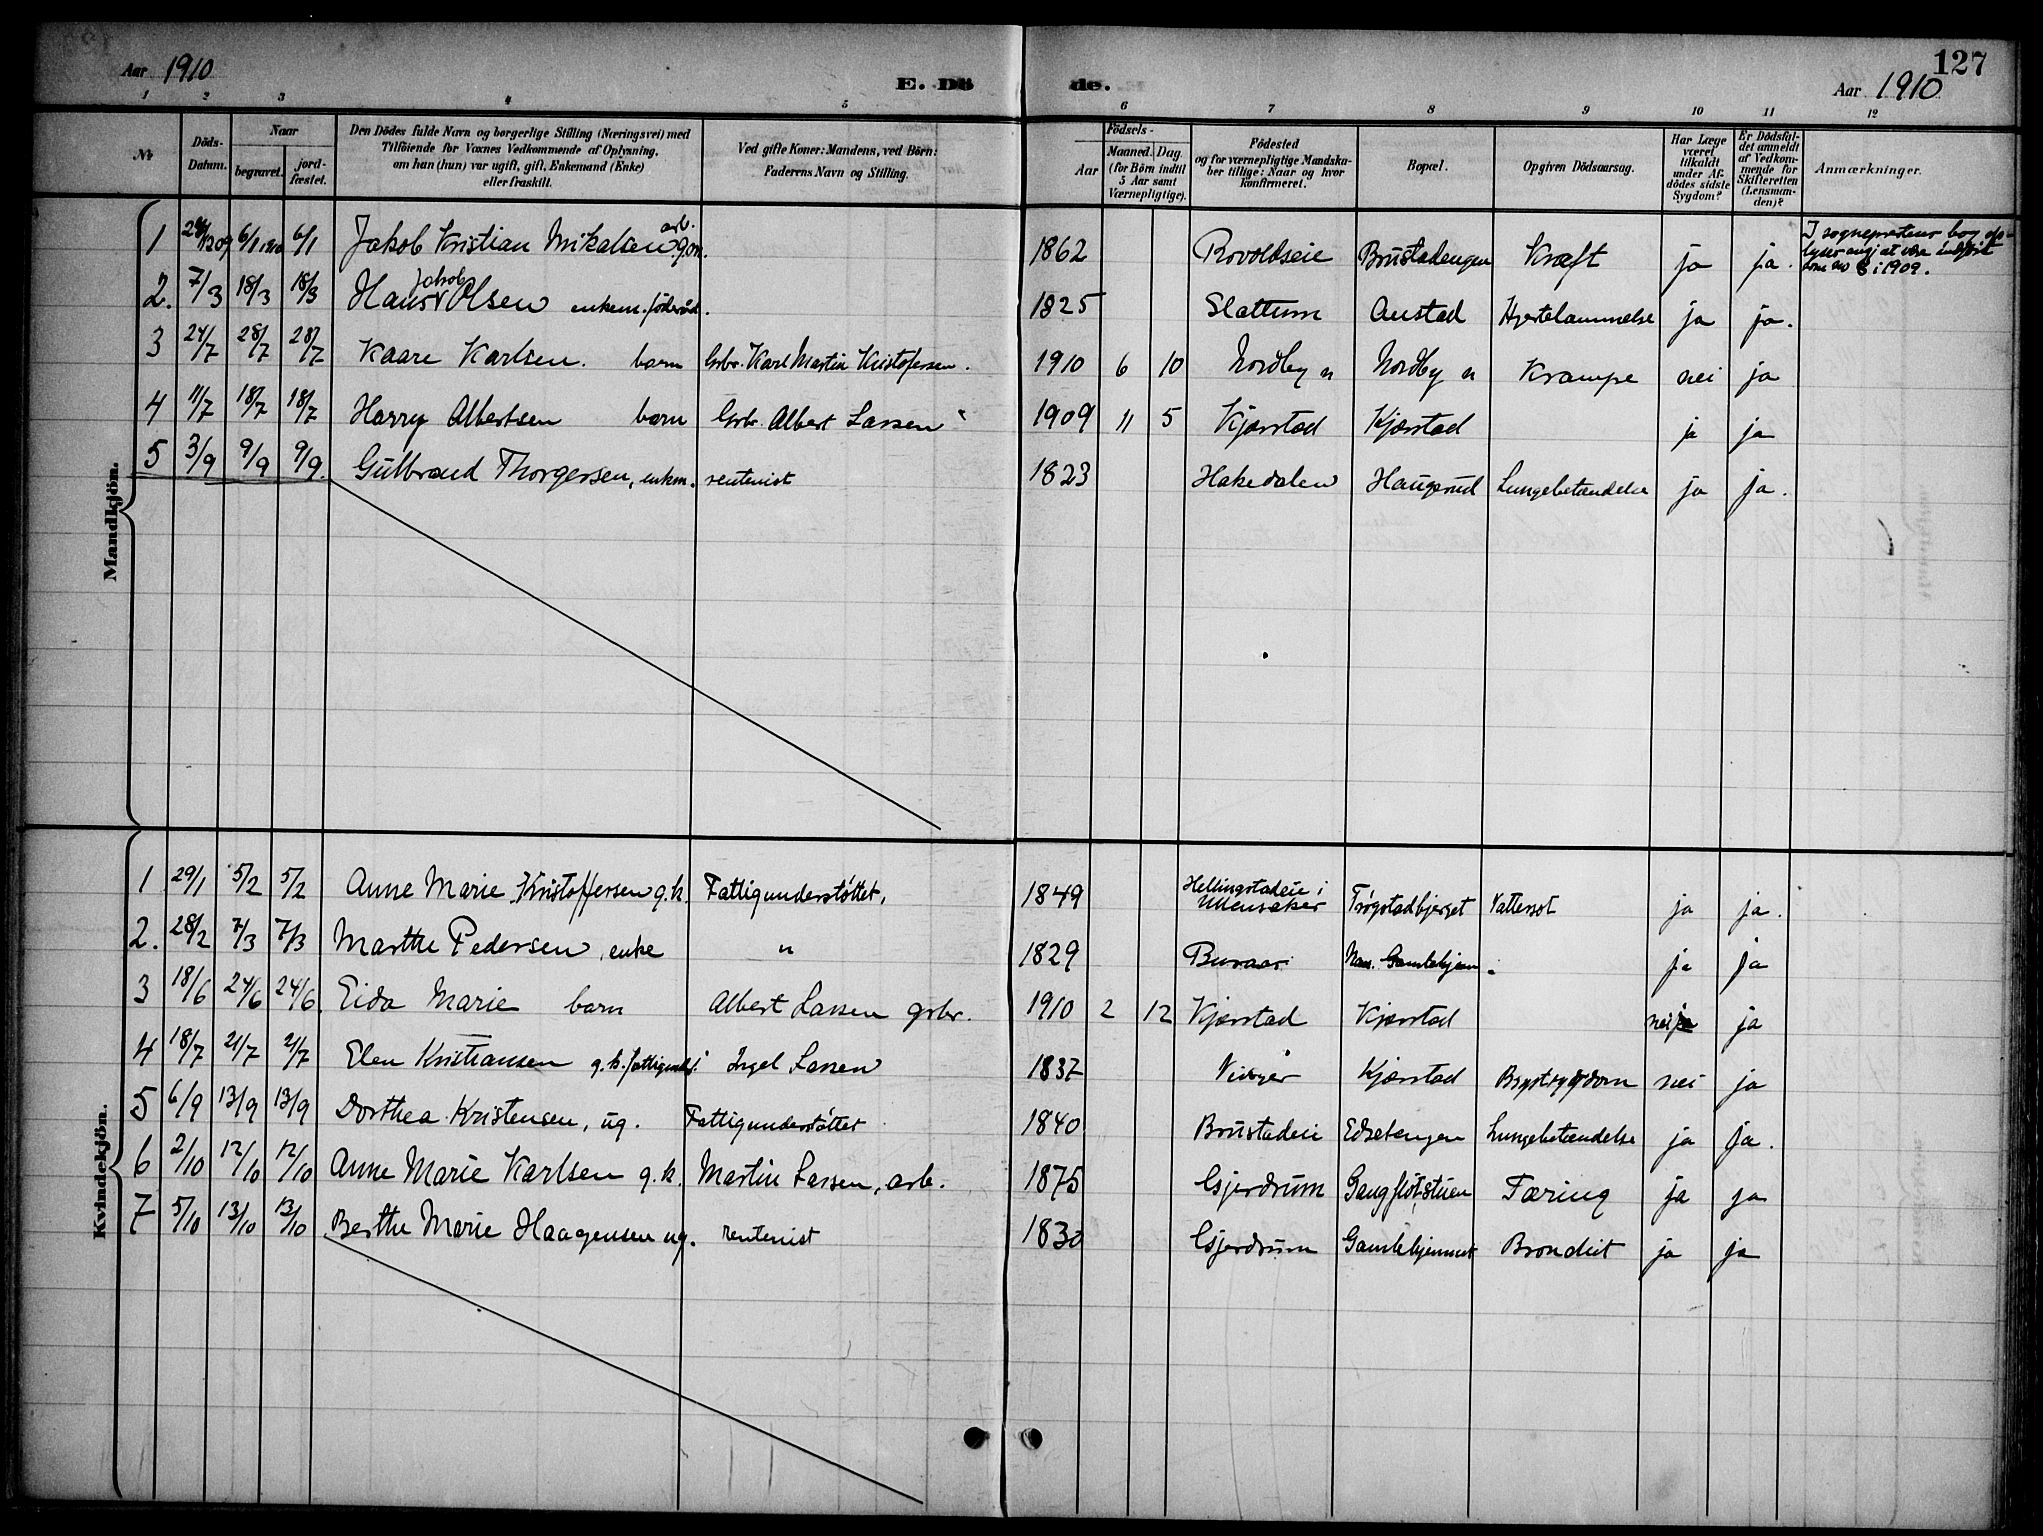 127
Aar 1910
E. Dö de.
Aar 1910
1 2 3 4 5 6 7 8 9 10 11 12
No
Döds-Datum.
Naar
begravet.
jord-fæstet.
Den Dödes fulde Navn og borgerlige Stilling (Næringsvei) med
Tilföiende for Voxnes Vedkommende af Oplysning,
om han (hun) var ugift, gift, Enkemand (Enke)
eller fraskilt.
Ved gifte Koner: Mandens, ved Börn:
Faderens Navn og Stilling.
Födsels-
Aar
Maaned. Dag
(for Börn indtil
5 Aar samt
Værnepligtige).
Födested
og for værnepligtige Mandska-
ber tillige: Naar og hvor
konfirmeret.
Bopæl.
Opgiven Dödsaarsag.
Har Læge
været
tilkaldt
under Af-
dödes sidste
Sygdom?
Er Dödsfal-
det anmeldt
af Vedkom-
mende for
Skifteretten
(Lensman-
den)?
Anmærkninger.
Mandkjön.
1 6/1 6/1 Jakob Kristian Mikalsen arb. g.m. 1862 Rovoldseie Brustadengen Kræft ja ja. I sogneprestens bog op-
lyser angj at være indført
som no 8 i 1909.
2. 7/3 18/3 18/3 Hans Jakob Olsen enkem. föderåd. 1825 Slattum Austad Hjertelammelse ja ja.
3 24/7 28/7 28/7 Kaare Karlsen. barn Grbr. Karl Martin Kristofersen. 1910 6 10 Nordby n Nordby n Krampe nei ja
4 11/7 18/7 18/7 Harry Albertsen barn Grbr. Albert Larsen 1909 11 5 Kjærstad Kjærstad ja ja
5 3/9 9/9 9/9. Gulbrand Thorgersen, enkm. rentenist 1823 Hakedalen Haugerud Lungebetændelse ja ja.
Kvindekjön.
1 29/1 5/2 5/2 Anne Marie Kristoffersen g.k. Fattigunderstöttet, 1849 Hellingstadeie i
Ullensaker Trøgstadbjerget Vattersot ja ja.
2. 28/2 7/3 7/3 Marthe Pedersen, enke " 1829 Buraas Gamlehjem ja ja
3 18/6 24/6 24/6. Eida Marie barn Albert Larsen grbr. 1910 2 12 Kjærstad Kjærstad nei ja
4 18/7 21/7 21/7 Elen Kristiansen g.k. fattigund. Ingel Larsen 1837 Kjærstad Brystsygdom nei ja
5 6/9 13/9 13/9 Dorthea Kristensen, ug. Fattigunderstöttet 1840 Brustadeie Lungebetændelse ja ja.
6 2/10 12/10 12/10 Anne Marie Karlsen g.k. Martin Larsen, arb. 1875 Gjerdrum Gangflötstuen Tæring ja ja
7 5/10 13/10 13/10 Berthe Marie Haagensen ug. rentenist 1830 Gjerdrum Gamlehjemmet Brondiit ja ja